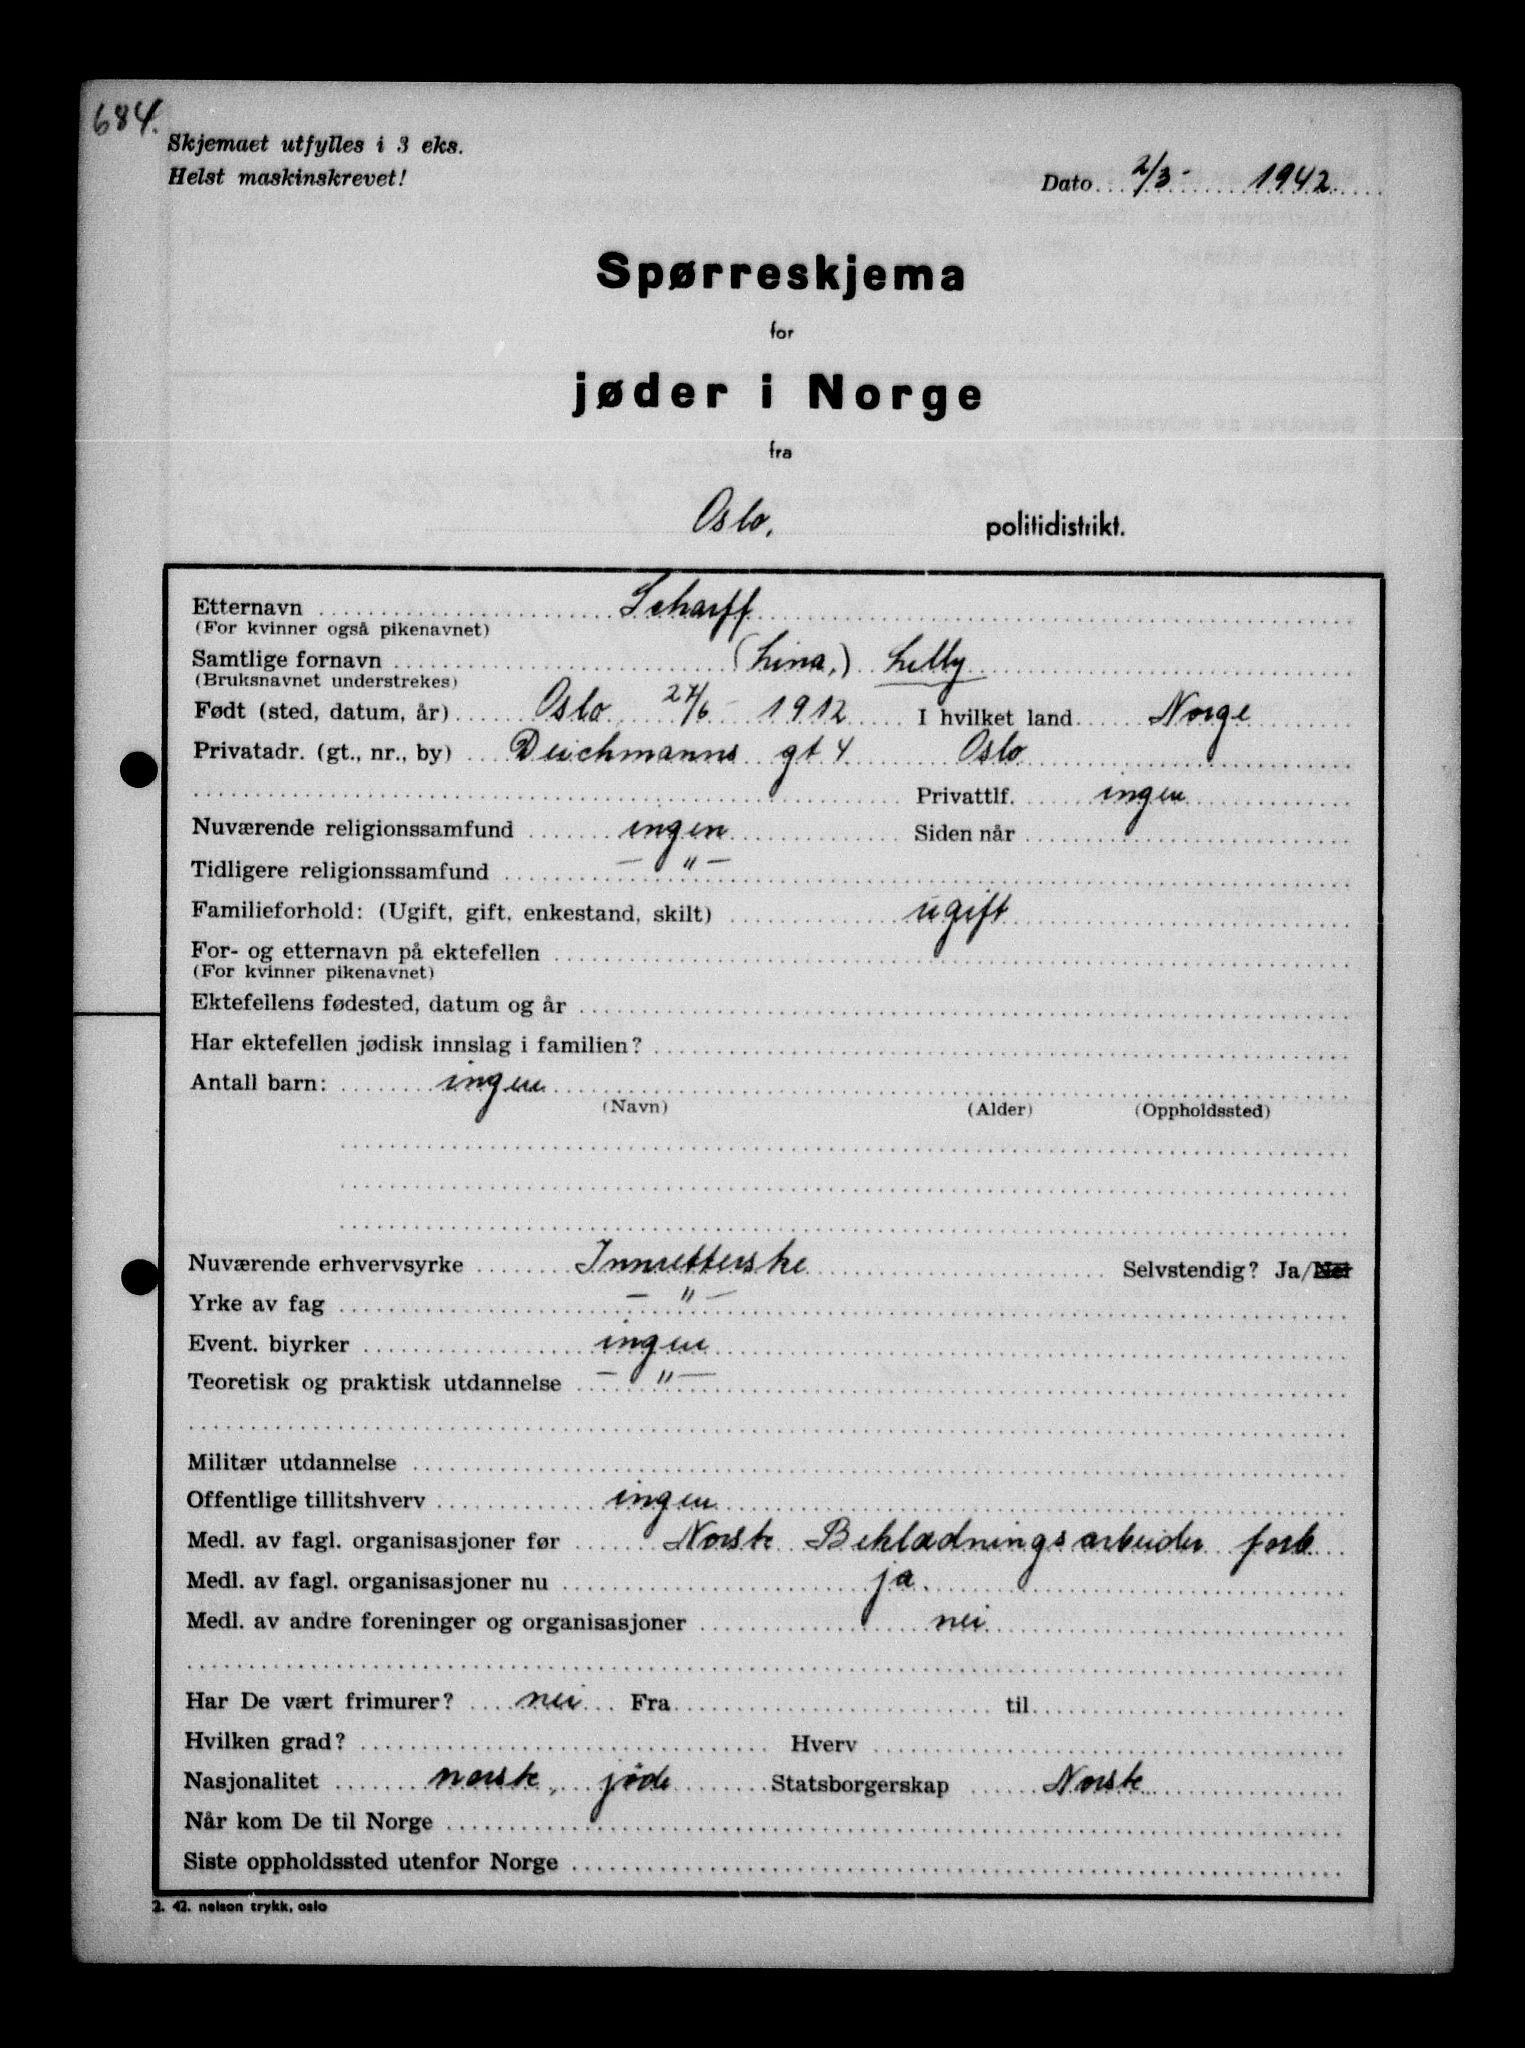 684.
Skjemaet utfylles i 3 eks.
Helst maskinskrevet!
Dato 2/3 - 1942.
Spørreskjema
for
jøder i Norge
fra
Oslo, politidistrikt.
Etternavn Scharff
(For kvinner også pikenavnet)
Samtlige fornavn (Lina,) Lilly
(Bruksnavnet understrekes)
Født (sted, datum, år) Oslo 27/6 - 1912 I hvilket land Norge
Privatadr. (gt., nr., by) Deichmanns gt 4 Oslo
Privattlf. ingen
Nuværende religionssamfund ingen Siden når
Tidligere religionssamfund — " —
Familieforhold: (Ugift, gift, enkestand, skilt) ugift
For- og etternavn på ektefellen
(For kvinner pikenavnet)
Ektefellens fødested, datum og år
Har ektefellen jødisk innslag i familien?
Antall barn: ingen
(Navn) (Alder) (Oppholdssted)
Nuværende erhvervsyrke Innretterske Selvstendig? Ja/Nei
Yrke av fag — " —
Event. biyrker ingen
Teoretisk og praktisk utdannelse — " —
Militær utdannelse
Offentlige tillitshverv ingen
Medl. av fagl. organisasjoner før Norsk Beklædningsarbeider forb.
Medl. av fagl. organisasjoner nu ja.
Medl. av andre foreninger og organisasjoner nei
Har De vært frimurer? nei Fra til
Hvilken grad? Hverv
Nasjonalitet norsk, jøde Statsborgerskap Norsk
Når kom De til Norge
Siste oppholdssted utenfor Norge
2. 42. nelson trykk, oslo